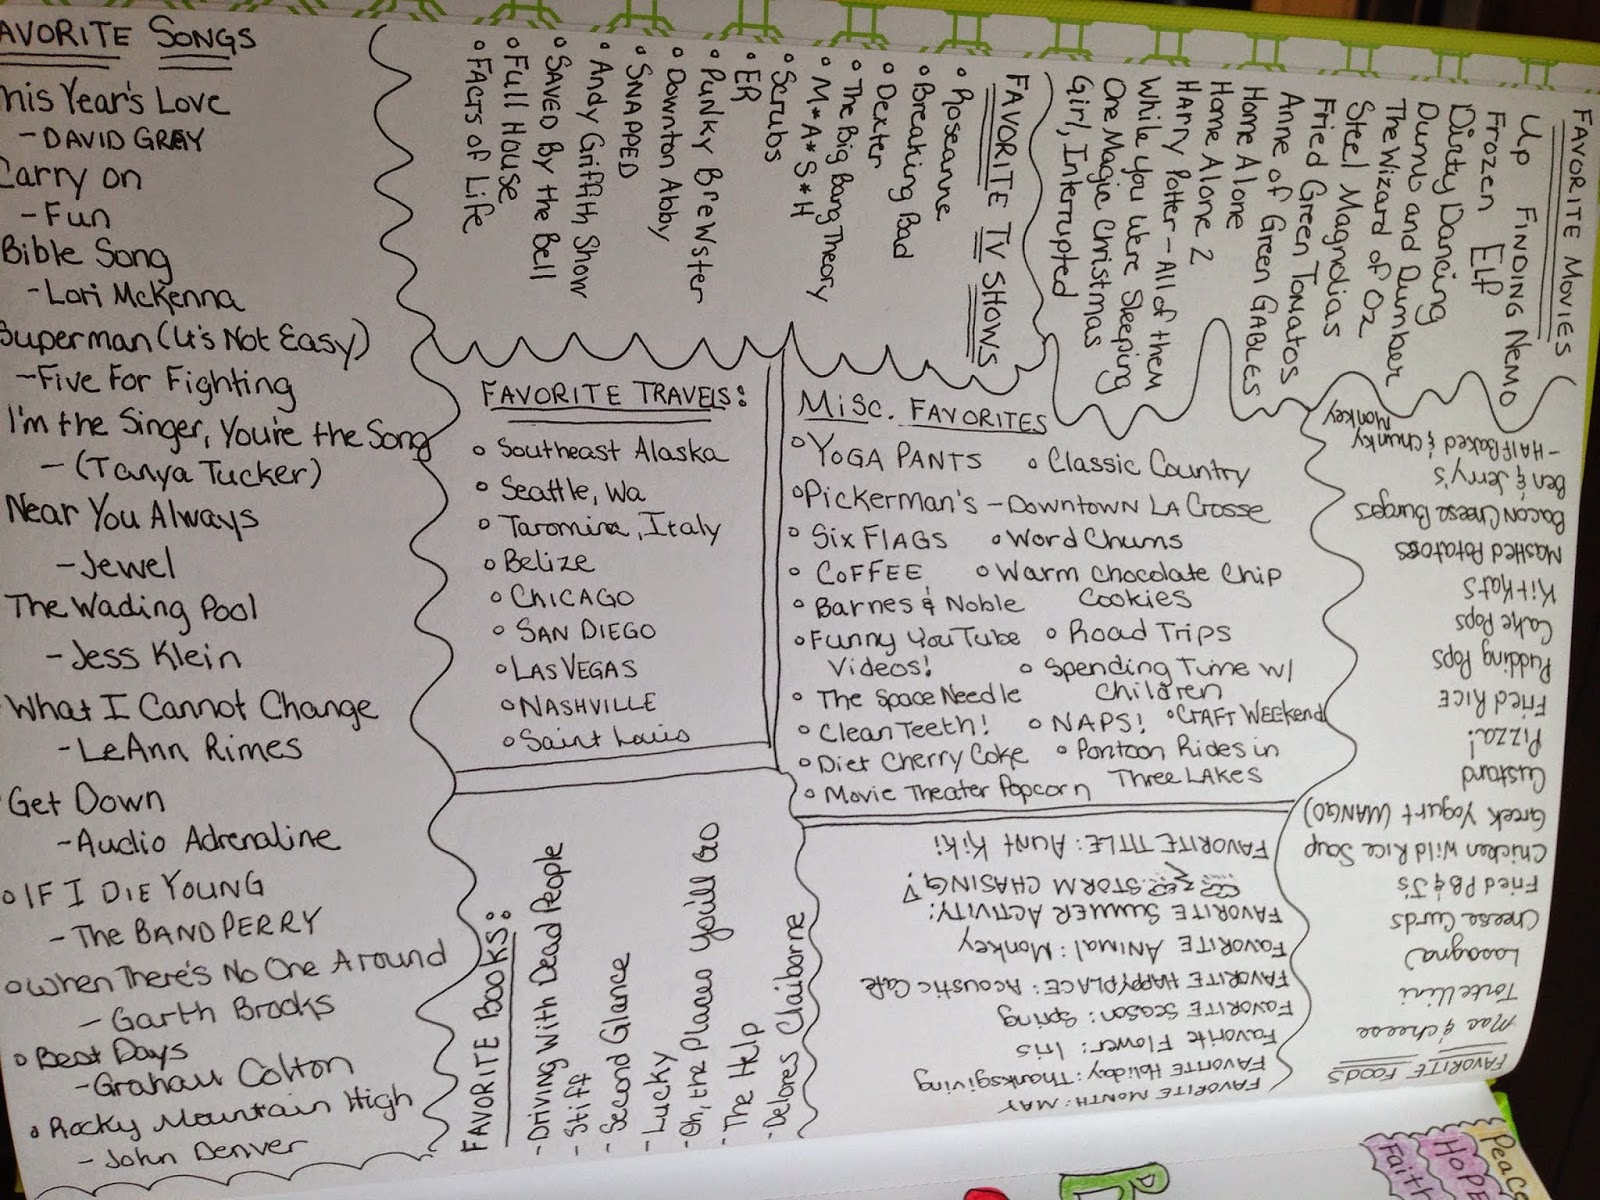 FAVORITE SONGS
This Year's Love
- DAVID GRAY
Carry on
- Fun
Bible Song
- Lori McKenna
Superman (It's Not Easy)
- Five For Fighting
I'm the Singer, You're the Song
- (Tanya Tucker)
Near You Always
- Jewel
The Wading Pool
- Jess Klein
What I Cannot Change
- LeAnn Rimes
Get Down
- Audio Adrenaline
IF I DIE YOUNG
- The BAND PERRY
When There's No One Around
- Garth Brooks
Best Days
- Graham Colton
Rocky Mountain High
- John Denver
FAVORITE TV SHOWS
Roseanne
Breaking Bad
Dexter
The Big Bang Theory
M*A*S*H
Scrubs
ER
Punky Brewster
Downton Abby
SNAPPED
Andy Griffith Show
SAVED By the Bell
Full House
FACTS of Life
FAVORITE MOVIES
Up FINDING NEMO
Frozen Elf
Dirty Dancing
Dumb and Dumber
The Wizard of Oz
Steel Magnolias
Fried Green Tomatos
Anne of Green GABLES
Home Alone
Home Alone 2
Harry Potter - All of them
While You Were Sleeping
One Magic Christmas
Girl, Interrupted
FAVORITE TRAVELS:
Southeast Alaska
Seattle, Wa
Taromina, Italy
Belize
CHICAGO
SAN DIEGO
LAS VEGAS
NASHVILLE
Saint Louis
MISC. FAVORITES
YOGA PANTS
Classic Country
Pickerman's - Downtown LaCrosse
Six FLAGS
Word Chums
COFFEE
Warm Chocolate Chip
Cookies
Barnes & Noble
Funny YouTube
Videos!
Road Trips
Spending Time w/
Children
The Space Needle
Clean Teeth!
NAPS!
CRAFT WEEKEND
Diet Cherry Coke
Pontoon Rides in
Three LAKES
Movie Theater Popcorn
FAVORITE BOOKS:
- Driving With Dead People
- Stiff
- Second Glance
- Lucky
- Oh, the Places You'll Go
- The Help
- Delores Claiborne
FAVORITE MONTH: MAY
FAVORITE Holiday: Thanksgiving
Favorite Flower: Iris
FAVORITE SEASON: Spring
FAVORITE HAPPY PLACE: Acoustic Cafe
FAVORITE ANIMAL: Monkey
FAVORITE SUMMER ACTIVITY:
STORM CHASING!
FAVORITE TITLE: Aunt Kiki
FAVORITE FOODS
Mac & cheese
Tortellini
Lasagna
Cheese Curds
Fried PB & J's
Chicken Wild Rice Soup
Greek Yogurt (MANGO)
Custard
Pizza!
FRIED RICE
Pudding Pops
Cake Pops
Kit Kats
MASHED POTATOES
Bacon Cheese Burgers
Ben & Jerry's
- HALF Baked & Chunky
Monkey
Peace
HOPE
Faith